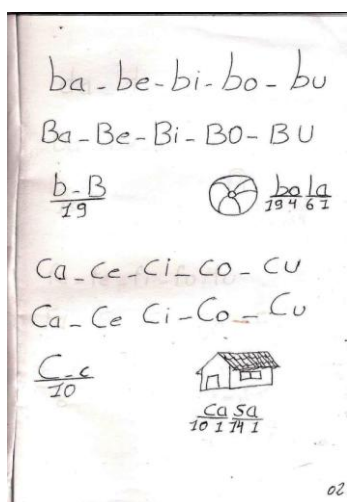 ba - be - bi - bo - bu
Ba - Be - Bi - BO - BU
b - B
19
bo la
19 4 6 1
Ca - Ce - Ci - CO - CU
Ca - Ce Ci - Co - Cu
C - c
10
ca sa
10 1 14 1
02